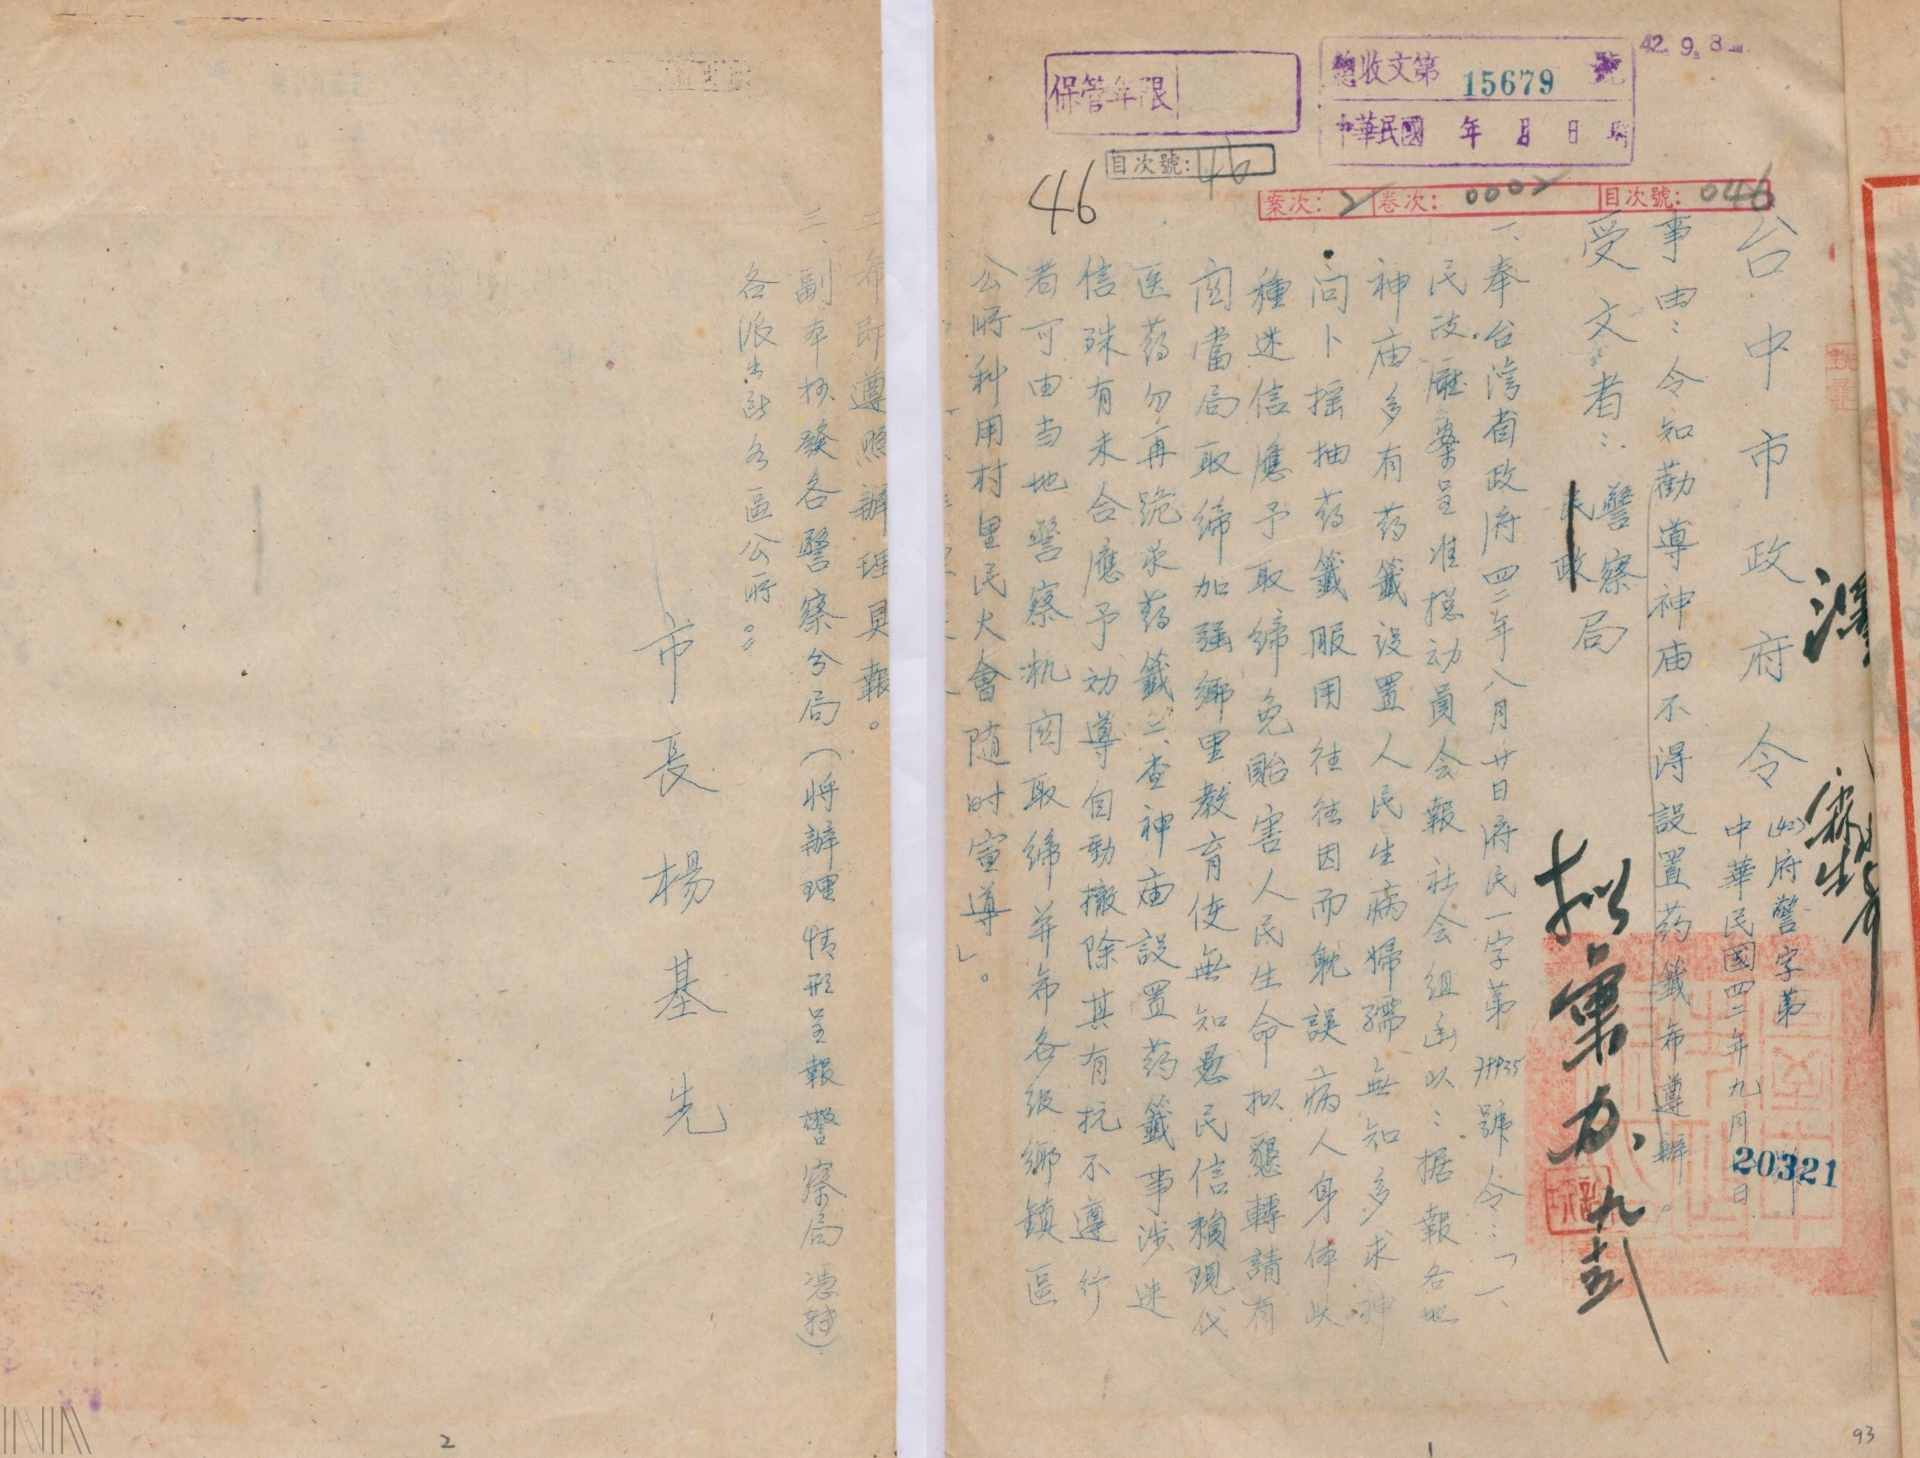 42. 9. 8
總收文第 15679 號
中華民國 年 月 日 時
保管年限
目次號: 46
案次: 2 卷次: 0002 目次號: 046
46
台中市政府令
(42)府警字第 20321
中華民國四二年九月 日
事由：令知勸導神庙不得設置药籤希遵辦。
受文者：警察局
民政
一、奉台湾省政府四二年八月廿日府民一字第 號令：「一、
民政廳案呈准總动員会報社会組函以：据報各地
神庙多有药籤設置人民生病婦孺無知多求神
问卜摇抽药籤服用往往因而躭誤病人身体此
種迷信應予取締免貽害人民生命拟懇轉請有
関當局取締加强鄉里教育使無知愚民信賴現代
医药勿再跪求药籤二、查神庙設置药籤事涉迷
信殊有未合應予劝導自動撤除其有抗不遵行
者可由当地警察机関取締并希各级鄉鎮區
公所利用村里民大會随时宣導」。
二、希即遵照辦理具報。
三、副本抄發各警察分局(将辦理情形呈報警察局凴轉)
各派出所各區公所。
市長楊基先
拟彙办 九
2
1
93